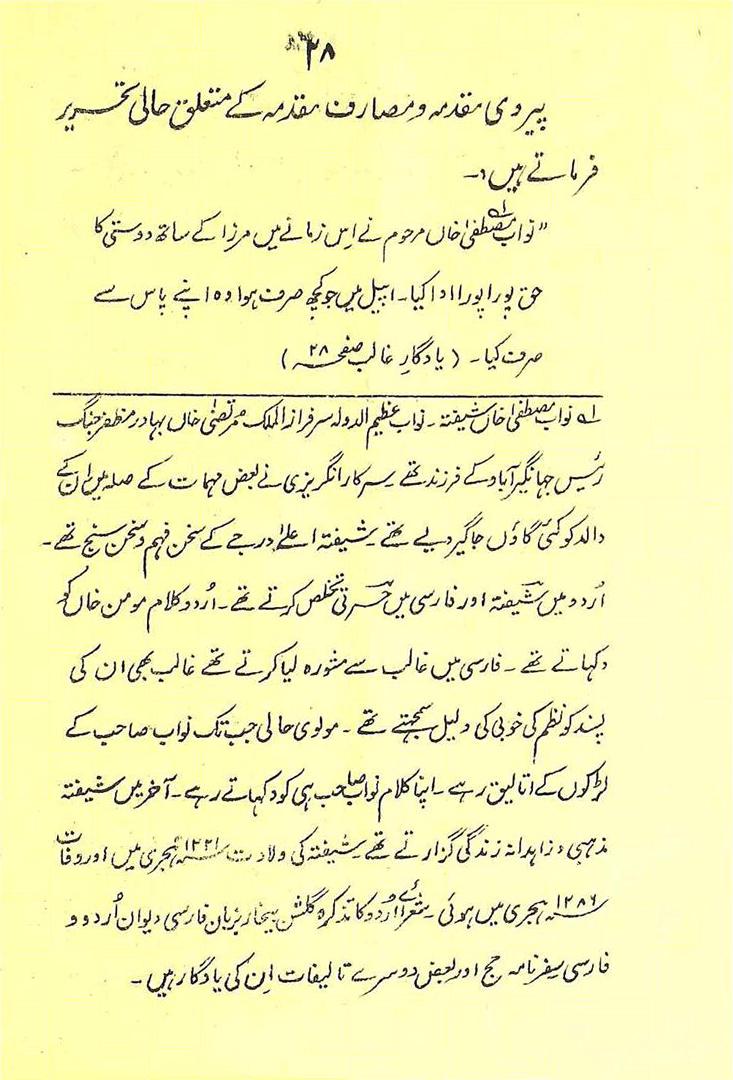 ۳۸
پیروی مقدمہ و مصارف مقدمہ کے متعلق حالی تحریر
فرماتے ہیں :۔
”نواب مصطفیٰ خاں ؎۱ مرحوم نے اِس زمانے میں مرزا کے ساتھ دوستی کا
حق پورا پورا ادا کیا۔ اپیل میں جو کچھ صرف ہوا وہ اپنے پاس سے
صرف کیا۔ (یادگارِ غالب صفحہ ۲۸)
؎۱ نواب مصطفیٰ خاں شیفتہ۔ نواب عظیم الدولہ سرفراز الملک مرتضیٰ خاں بہادر مظفر جنگ
رئیس جہانگیرآباد کے فرزند تھے۔ سرکار انگریزی نے بعض مہمات کے صلہ میں ان کے
والد کو کئی گاؤں جاگیر دیے تھے۔ شیفتہ اعلےٰ درجے کے سخن فہم و سخن سنج تھے۔
اُردو میں شیفتہ اور فارسی میں حسرتی تخلص کرتے تھے۔ اُردو کلام مومن خاں کو
دکہاتے تھے۔ فارسی میں غالب سے مشورہ لیا کرتے تھے غالب بھی ان کی
پسند کو نظم کی خوبی کی دلیل سمجہتے تھے۔ مولوی حالی جب تک نواب صاحب کے
لڑکوں کے اتالیق رہے۔ اپنا کلام نواب صاحب ہی کو دکہاتے رہے۔ آخر میں شیفتہ
مذہبی و زاہدانہ زندگی گزارتے تھے۔ شیفتہ کی ولادت ۱۲۲۱ ہجری میں اور وفات
۱۲۸۶ ہجری میں ہوئی۔ شعرائے اُردو کا تذکرہ گلشن بیخار بزبان فارسی دیوان اُردو و
فارسی سفرنامہ حج اور بعض دوسرے تالیفات اِن کی یادگار ہیں۔